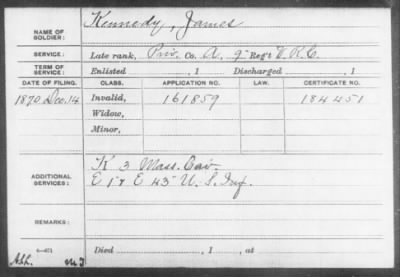 Kennedy, James
NAME OF
SOLDIER:
SERVICE: Late rank, Priv. Co. A, 9" Reg't V.R.C.
TERM OF
SERVICE: Enlisted , 1 Discharged , 1
DATE OF FILING. CLASS. APPLICATION NO. LAW. CERTIFICATE NO.
1870 Dec. 14 Invalid, 161859 184451
Widow,
Minor,
K 3 Mass. Cav.
ADDITIONAL
SERVICES: E 17 E 43 U. S. Inf.
REMARKS:
Died , 1 , at